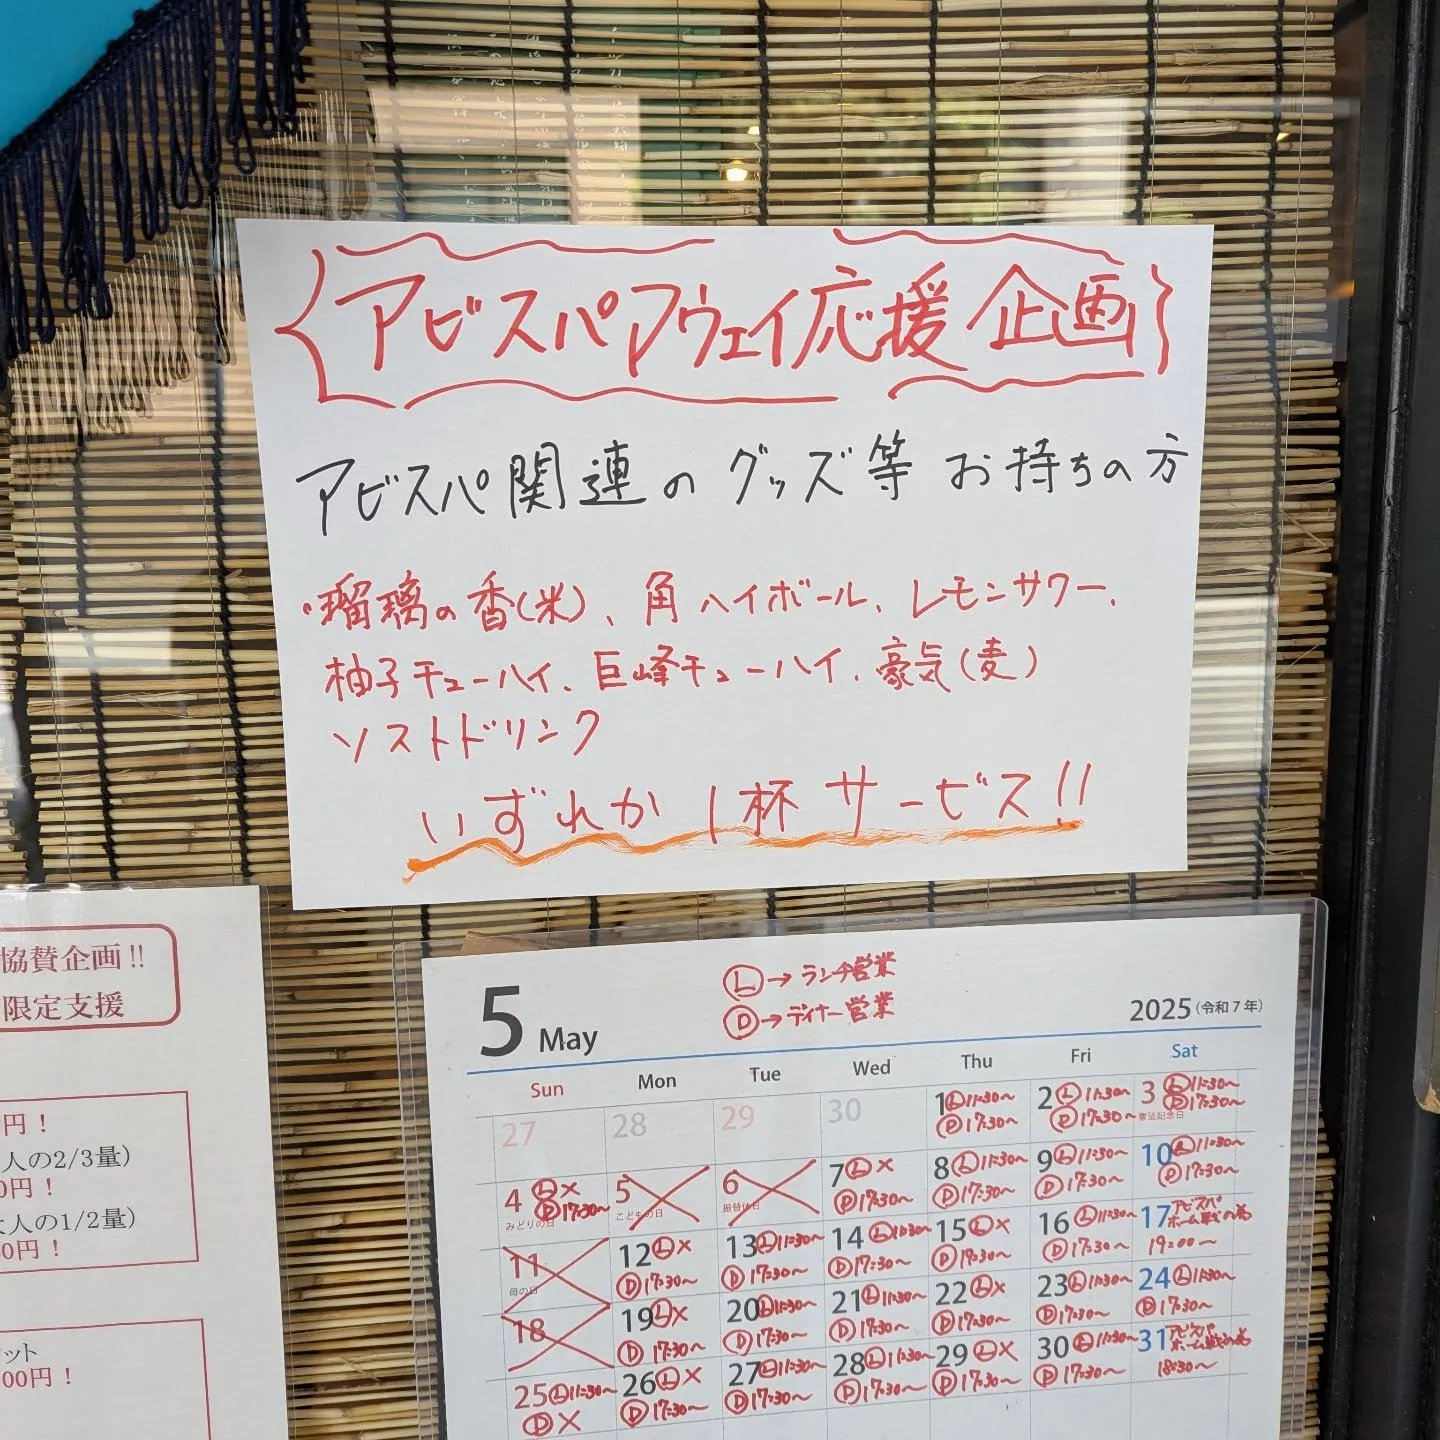 アビスパアウェイ応援企画
アビスパ関連のグッズ等お持ちの方
・瑠璃の香(米)、角ハイボール、レモンサワー、
柚子チューハイ、巨峰チューハイ、豪気(麦)
ソストドリンク
いずれか1杯サービス!!
協賛企画!!
限定支援
円!
人の2/3量)
0円!
大人の1/2量)
00円!
ット
00円!
5 May
Ⓛ→ランチ営業
Ⓓ→ディナー営業
2025(令和7年)
Sun Mon Tue Wed Thu Fri Sat
27 28 29 30 1 Ⓛ11:30〜 2 Ⓛ11:30〜 3 Ⓛ11:30〜
Ⓓ17:30〜 Ⓓ17:30〜 憲法記念日 Ⓓ17:30〜
4 Ⓛ× 5 6 7 Ⓛ× 8 Ⓛ11:30〜 9 Ⓛ11:30〜 10 Ⓛ11:30〜
みどりの日 Ⓓ17:30〜 こどもの日 振替休日 Ⓓ17:30〜 Ⓓ17:30〜 Ⓓ17:30〜 Ⓓ17:30〜
11 12 Ⓛ× 13 Ⓛ11:30〜 14 Ⓛ11:30〜 15 Ⓛ× 16 Ⓛ11:30〜 17 アビスパホーム戦の為
母の日 Ⓓ17:30〜 Ⓓ17:30〜 Ⓓ17:30〜 Ⓓ17:30〜 Ⓓ17:30〜 19:00〜
18 19 Ⓛ× 20 Ⓛ11:30〜 21 Ⓛ11:30〜 22 Ⓛ× 23 Ⓛ11:30〜 24 Ⓛ11:30〜
Ⓓ17:30〜 Ⓓ17:30〜 Ⓓ17:30〜 Ⓓ17:30〜 Ⓓ17:30〜 Ⓓ17:30〜
25 Ⓛ11:30〜 26 Ⓛ× 27 Ⓛ11:30〜 28 Ⓛ11:30〜 29 Ⓛ× 30 Ⓛ11:30〜 31 アビスパホーム戦の為
Ⓓ× Ⓓ17:30〜 Ⓓ17:30〜 Ⓓ17:30〜 Ⓓ17:30〜 Ⓓ17:30〜 18:30〜